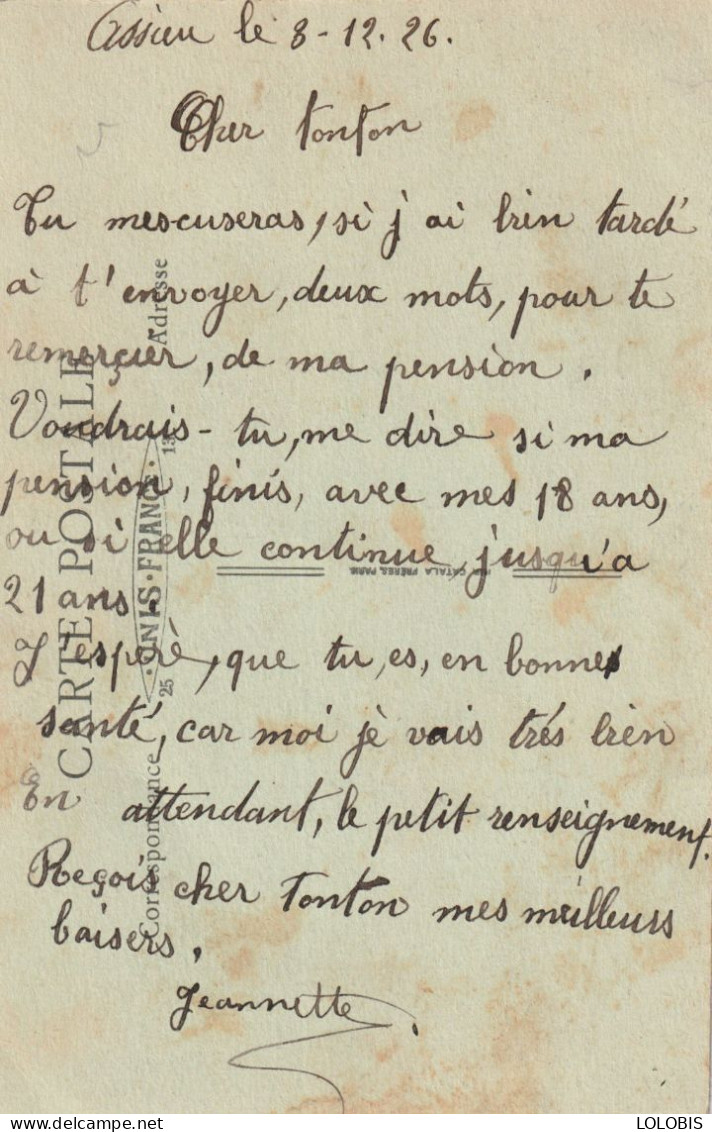 Assieu le 8-12.26.
Cher tonton
Tu mescuseras, si j'ai bien tardé
à t'envoyer, deux mots, pour te
remerçier, de ma pension.
Voudrais-tu, me dire si ma
pension, finis, avec mes 18 ans,
ou si elle continue jusqu'a
21 ans.
J'espère, que tu, es, en bonne
santé, car moi jè vais trés bièn
En attendant, le petit renseignement.
Reçois cher tonton mes meilleurs
baisers.
Jeannette.
CARTE POSTALE
Correspondance
Adresse
UNIS-FRANCE
25
CATALA FRÈRES, PARIS
LOLOBIS